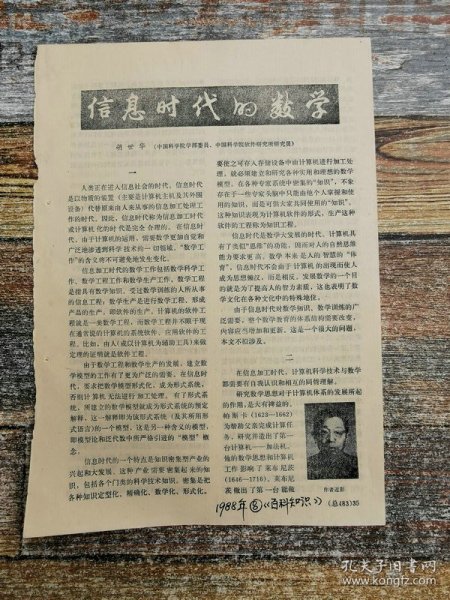 信息时代的数学
胡世华 （中国科学院学部委员、中国科学院软件研究所研究员）
一
人类正在进入信息社会的时代。信息时代
是以物质的装置（主要是计算机主机及其外围
设备）代替原来由人来从事的信息加工处理工
作的时代。因此，信息时代称为信息加工时代
或计算机化的时代是完全合理的。在信息时
代，由于计算机的运用，需要数学更加自觉和
广泛地渗透到科学技术的一切领域，“数学工
作”的含义将不可避免地发生变化。
信息加工时代的数学工作包括数学科学工
作、数学工程工作和数学生产工作。数学工程
是指具有数学知识、受过数学训练的人所从事
的信息工程；数学生产是进行数学工程，形成
产品的生产，即软件的生产。计算机的软件工
程就是一类数学工程，而数学工程并不限于现
在通常说的计算机的系统软件、应用软件的工
程。比如，由人(或以计算机为辅助工具)来做
定理的证明就是软件工程。
由于数学工程和数学生产的发展，建立数
学模型的工作有了更为广泛的需要。在信息时
代，要求把数学模型形式化，成为形式系统，
否则计算机无法进行加工处理。有了形式系
统，所建立的数学模型就成为形式系统的预定
解释。这一解释即为该形式系统（及其所用形
式语言）的一个模型，这是另一种含义的模型，
即模型论和泛代数中所严格引进的“模型”概
念。
信息时代的一个特点是知识密集型产业的
兴起和大发展。这种产业需要密集起来的知
识，包括各个门类的科学技术知识。密集是把
各种知识定型化、精确化、数学化、形式化。
要使之可存入存储设备中由计算机进行加工处
理，就必须建立和研究各种实用和理想的数学
模型。在各种专家系统中密集的“知识”，不象
存在于一些专家头脑中只能由他个人掌握和使
用的知识，而是可供大家共同使用的“知识”。
这种知识表现为计算机软件的形式，生产这种
软件的工程称为知识工程。
信息时代是数学大发展的时代。计算机具
有了类似“思维”的功能，因而对人的自然思维
能力要求更高。数学本来是人的智慧的“体
育”。信息时代不会由于计算机的出现而使人
成为思想懒汉，而是相反，发展数学的一个目
的就是为了提高人的智力素质，这也表明了数
学文化在各种文化中的特殊地位。
由于信息时代对数学知识、数学训练的广
泛需要，整个数学教育的体系结构需要改变，
内容应当增加和更新。这是一个很大的问题，
本文不拟涉及。
二
在信息加工时代，计算机科学技术与数学
都需要有自我认识和相互的局情理解。
研究数学思想对于计算机体系的发展所起
的作用，是大有裨益的。
帕斯卡（1623—1662）
为帮助父亲完成计算任
务，研究并造出了第一
台计算机——加法机。
他的数学思想和计算机
工作影响了莱布尼茨
(1646—1716)。莱布尼
茨做出了第一台能做
作者近影
1988年⑥《百科知识》
(总483)35
孔夫子旧书网